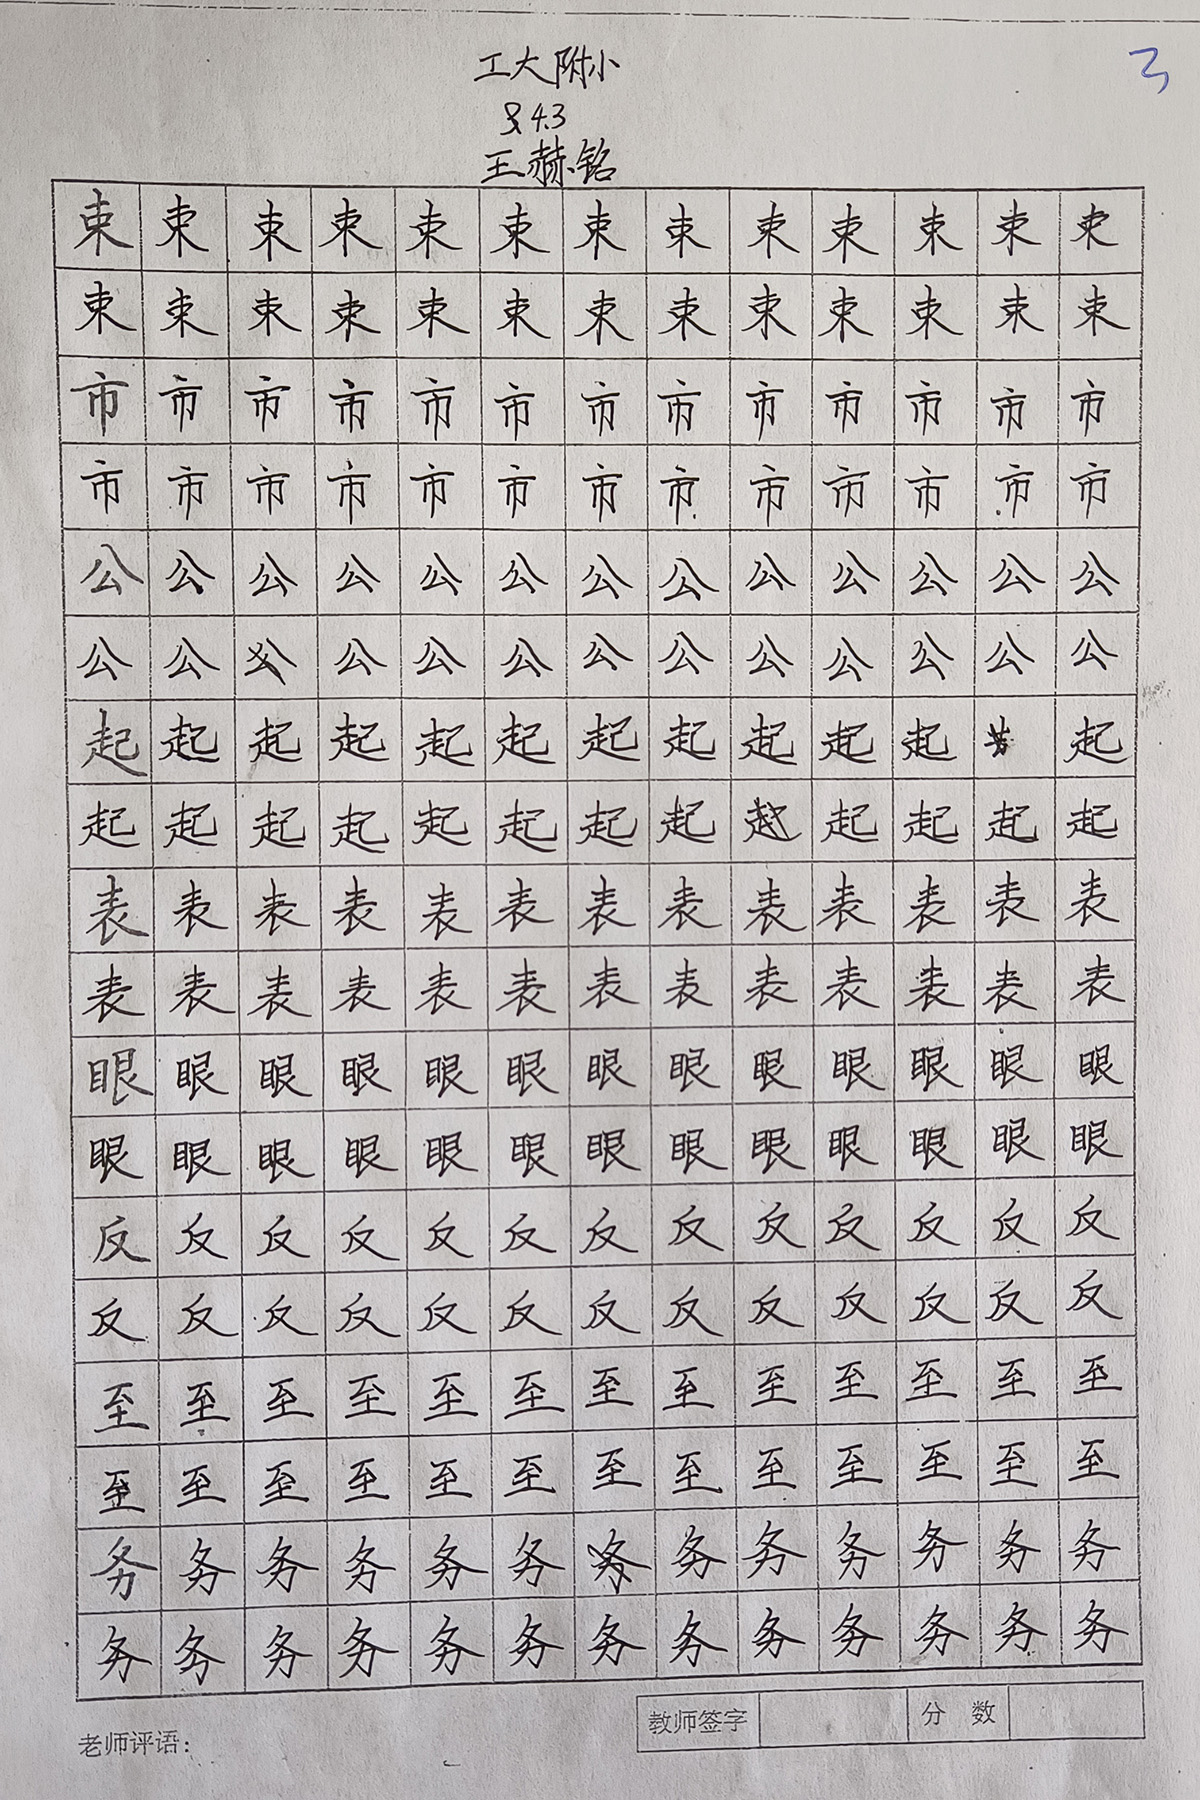 3
工大附小
4.3
王赫铭
束 束 束 束 束 束 束 束 束 束 束 束 束
束 束 束 束 束 束 束 束 束 束 束 束 束
市 市 市 市 市 市 市 市 市 市 市 市 市
市 市 市 市 市 市 市 市 市 市 市 市 市
公 公 公 公 公 公 公 公 公 公 公 公 公
公 公 公 公 公 公 公 公 公 公 公 公
起 起 起 起 起 起 起 起 起 起 起 起
起 起 起 起 起 起 起 起 起 起 起 起
表 表 表 表 表 表 表 表 表 表 表 表 表
表 表 表 表 表 表 表 表 表 表 表 表 表
眼 眼 眼 眼 眼 眼 眼 眼 眼 眼 眼 眼 眼
眼 眼 眼 眼 眼 眼 眼 眼 眼 眼 眼 眼 眼
反 反 反 反 反 反 反 反 反 反 反 反 反
反 反 反 反 反 反 反 反 反 反 反 反 反
至 至 至 至 至 至 至 至 至 至 至 至 至
至 至 至 至 至 至 至 至 至 至 至 至 至
务 务 务 务 务 务 务 务 务 务 务 务
务 务 务 务 务 务 务 务 务 务 务 务 务
教师签字 分 数
老师评语：